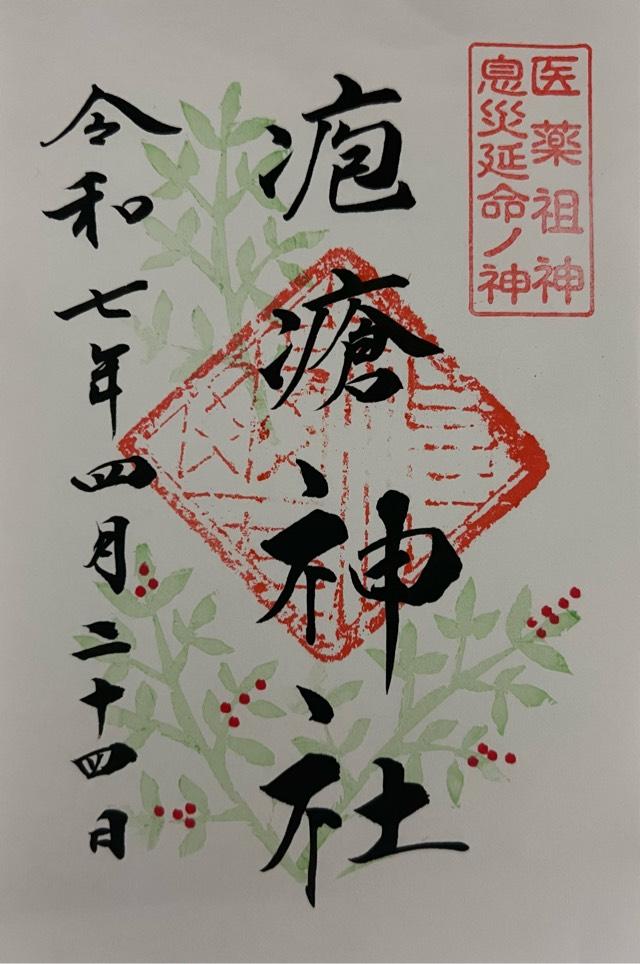 医薬祖神
息災延命ノ神
疱瘡神社
令和七年四月二十四日